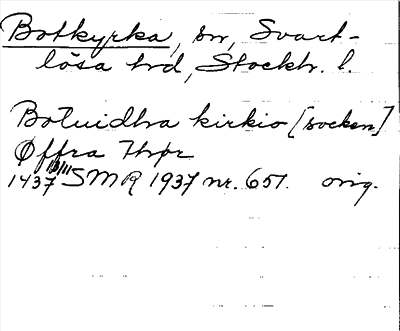 Botkyrka, sn, Svart-
lösa hd, Stockh. l.
Botuidhra kirkio [socken]
Øffra Thrpr
1437 13/11 SMR 1937 nr. 651. orig.